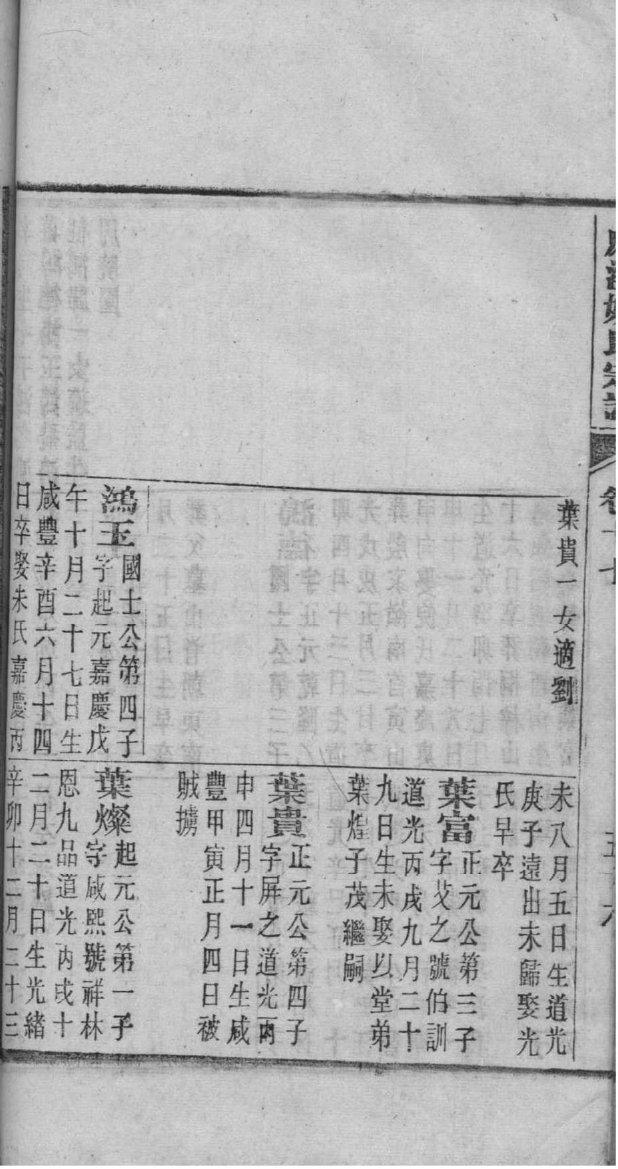 氏宗
卷十七
葉貴一女適劉
鴻玉國士公第四子
字起元嘉慶戊
午十月二十七日生
咸豐辛酉六月十四
日卒娶朱氏嘉慶丙
未八月五日生道光
庚子遠出未歸娶光
氏早卒
葉富正元公第三子
字艾之號伯訓
道光丙戌九月二十
九日生未娶以堂弟
葉煌子茂繼嗣
葉貴正元公第四子
字屏之道光丙
申四月十一日生咸
豐甲寅正月四日被
賊擄
葉燦起元公第一子
字咸熙號祥林
恩九品道光丙戌十
二月二十日生光緒
辛卯十二月二十三